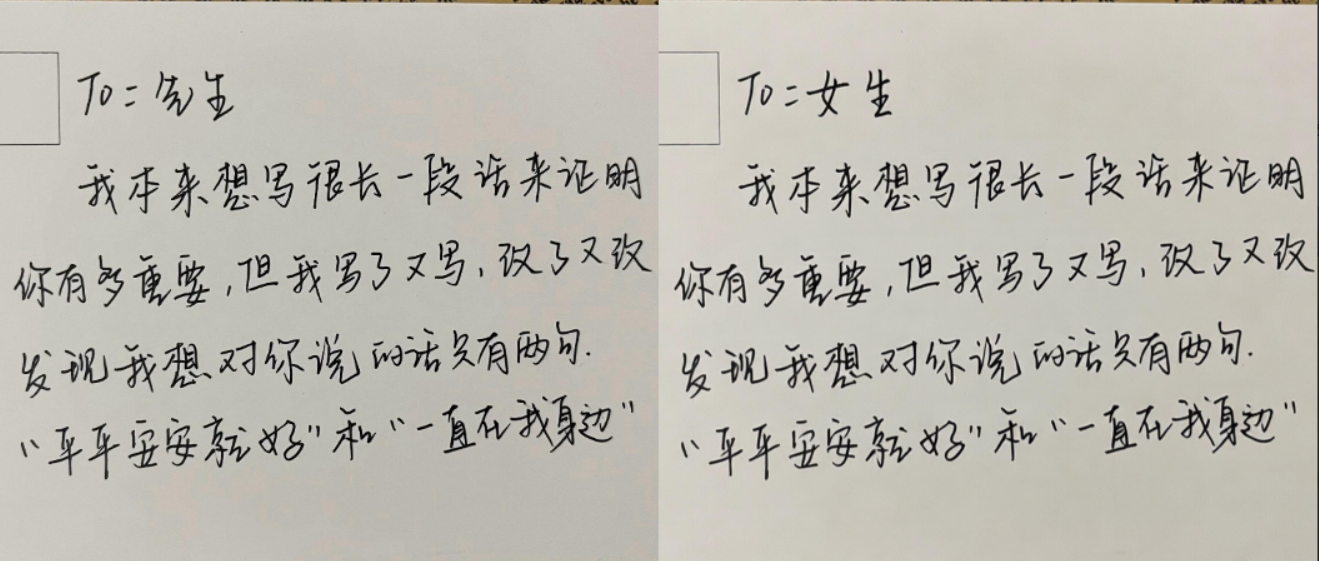 To=先生
我本来想写很长一段话来证明
你有多重要,但我写了又写,改了又改
发现我想对你说的话只有两句.
“平平安安就好”和“一直在我身边”
To=女生
我本来想写很长一段话来证明
你有多重要,但我写了又写,改了又改
发现我想对你说的话只有两句.
“平平安安就好”和“一直在我身边”